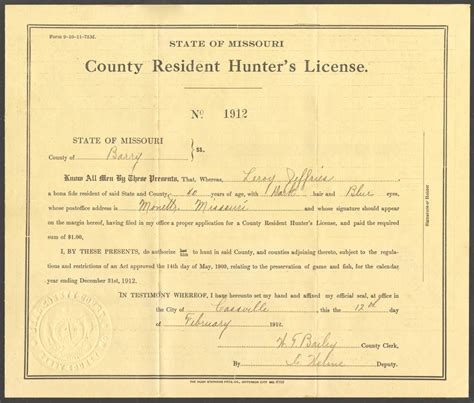 Form 9-10-11-75M.
STATE OF MISSOURI
County Resident Hunter's License.
No 1912
STATE OF MISSOURI
County of Barry } SS.
Know All Men By These Presents, That, Whereas, Leroy Jeffries
a bona fide resident of said State and County, 60 years of age, with Dark hair and Blue eyes,
whose postoffice address is Monett, Missouri and whose signature should appear
on the margin hereof, having filed in my office a proper application for a County Resident Hunter's License, and paid the required
sum of $1.00,
I, BY THESE PRESENTS, do authorize him to hunt in said County, and counties adjoining thereto, subject to the regula-
tions and restrictions of an Act approved the 14th day of May, 1909, relating to the preservation of game and fish, for the calendar
year ending December 31st, 1912.
IN TESTIMONY WHEREOF, I have hereunto set my hand and affixed my official seal, at office
in the City of Cassville this 12th day
of February 1912.
County Clerk.
Deputy.